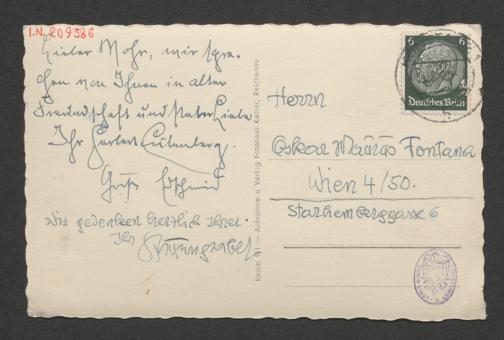 I.N. 209386
Lieber Mohr, wir spre-
chen von Ihnen in alter
Freundschaft und
Ihr Herbert
Gruß
Wir gedenken herzlich Ihrer.
Ihr
Reich 111 — Aufnahme u. Verlag Fotohaus Keller, Reichenau
6 6
Deutsches Reich
Herrn
Oskar Maurus Fontana
Wien 4/50.
Starhemberggasse 6